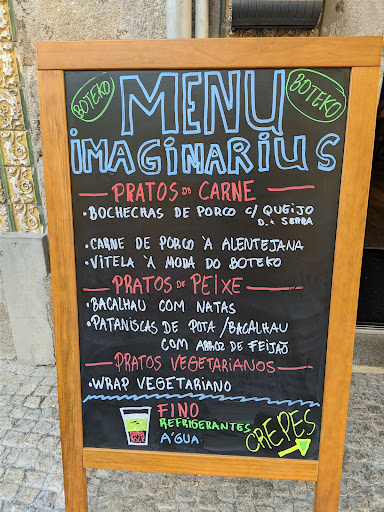 BOTEKO
BOTEKO
MENU
iMAGiNARiUS
PRATOS DE CARNE
• BOCHECHAS DE PORCO C/ QUEIJO
DA SERRA
• CARNE DE PORCO À ALENTEJANA
• VITELA À MODA DO BOTEKO
PRATOS DE PEIXE
• BACALHAU COM NATAS
• PATANISCAS DE POTA / BACALHAU
COM ARROZ DE FEIJÃO
PRATOS VEGETARIANOS
• WRAP VEGETARIANO
FINO
REFRIGERANTES
ÁGUA
CREPES